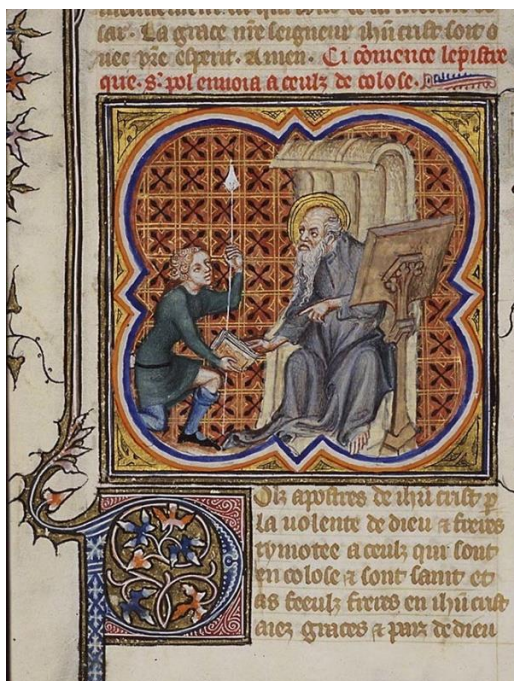 sar. La grace n̄re seigneur ihū crist soit o
uec v̄re esperit. Amen. Ci cōmence lepistre
que. s. pol enuoia a ceulz de colose.
Polz apostres de ihū crist p
la uolente de dieu ⁊ freres
tymotee a ceulz qui sont
en colose ⁊ sont saint et
as feeulz freres en ihū crist
aiez graces ⁊ paix de dieu